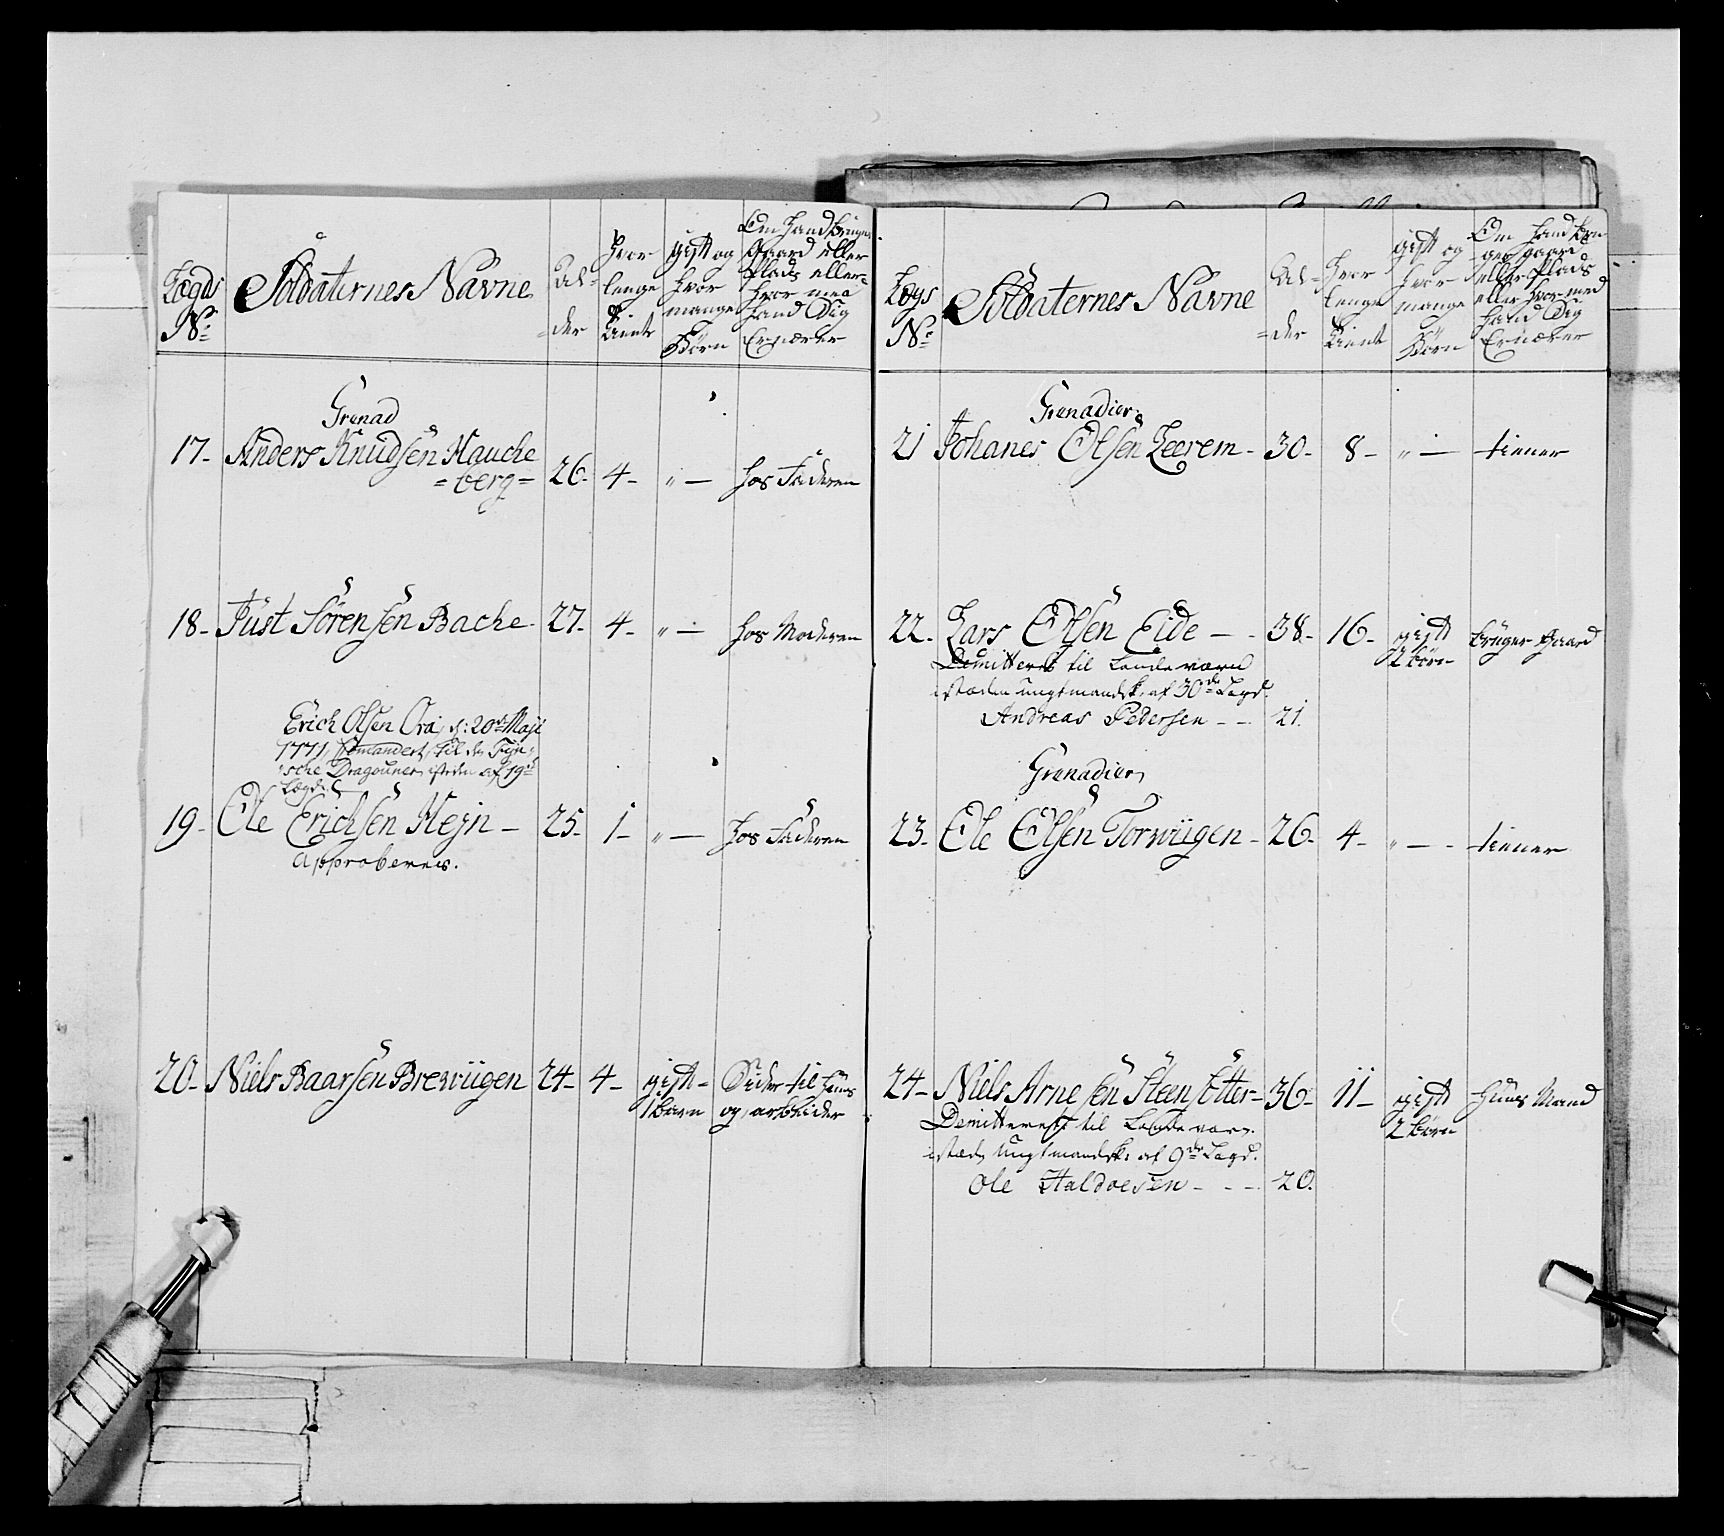 Lægds
No
Soldaternes Navne
Al=
=der
Hvor
lenge
tient
gift og
hvor
mange
Børn
Om hand bruger
Gaard eller
Plads eller
hvor med
hand Sig
Ernærer
Grenad
17- Anders Knudsen Hauche 26- 4- " — hos Faderen
=berg=
18- Just Sörensen Bache 27- 4- " — hos Moderen
Erich Olsen Ora, d: 20de Maji
1771, Comanderet, til de
sche Dragouner, isteden af 19de
Lægd.
19- Ole Erichsen Hejn — 25- 1- " — hos Faderen
Approberes.
20- Niels Baarsen Brewiigen 24- 4- gift- Sider til Huus
1 barn og arbeider
Lægs
No
Soldaternes Navne
Al=
=der
Hvor
lenge
tient
gift og
hvor
mange
Börn
Om hand bru
ger gaard
eller Plads
eller hvor med
hand Sig
Ernærer
Grenadier
21 Johanes Olsen Leerem- 30- 8- " — tienner
22- Lars Olsen Eide — - 38- 16- gift bruger Gaard
2 börn
Demitteres til Landeværn
isteden ungtmandsk. af 30de Lægd.
Andreas Pedersen - - 21.
Grenadier
23- Ole Olsen Torwiigen - 26- 4- " — - tienner
24- Niels Arnesen Steensötter- 36- 11- gift Huus Mand
2 börn
Demitteres til Landeværn.
isteden ungtmandsk: af 9de Lægd.
Ole Haldoesen - - - 20.